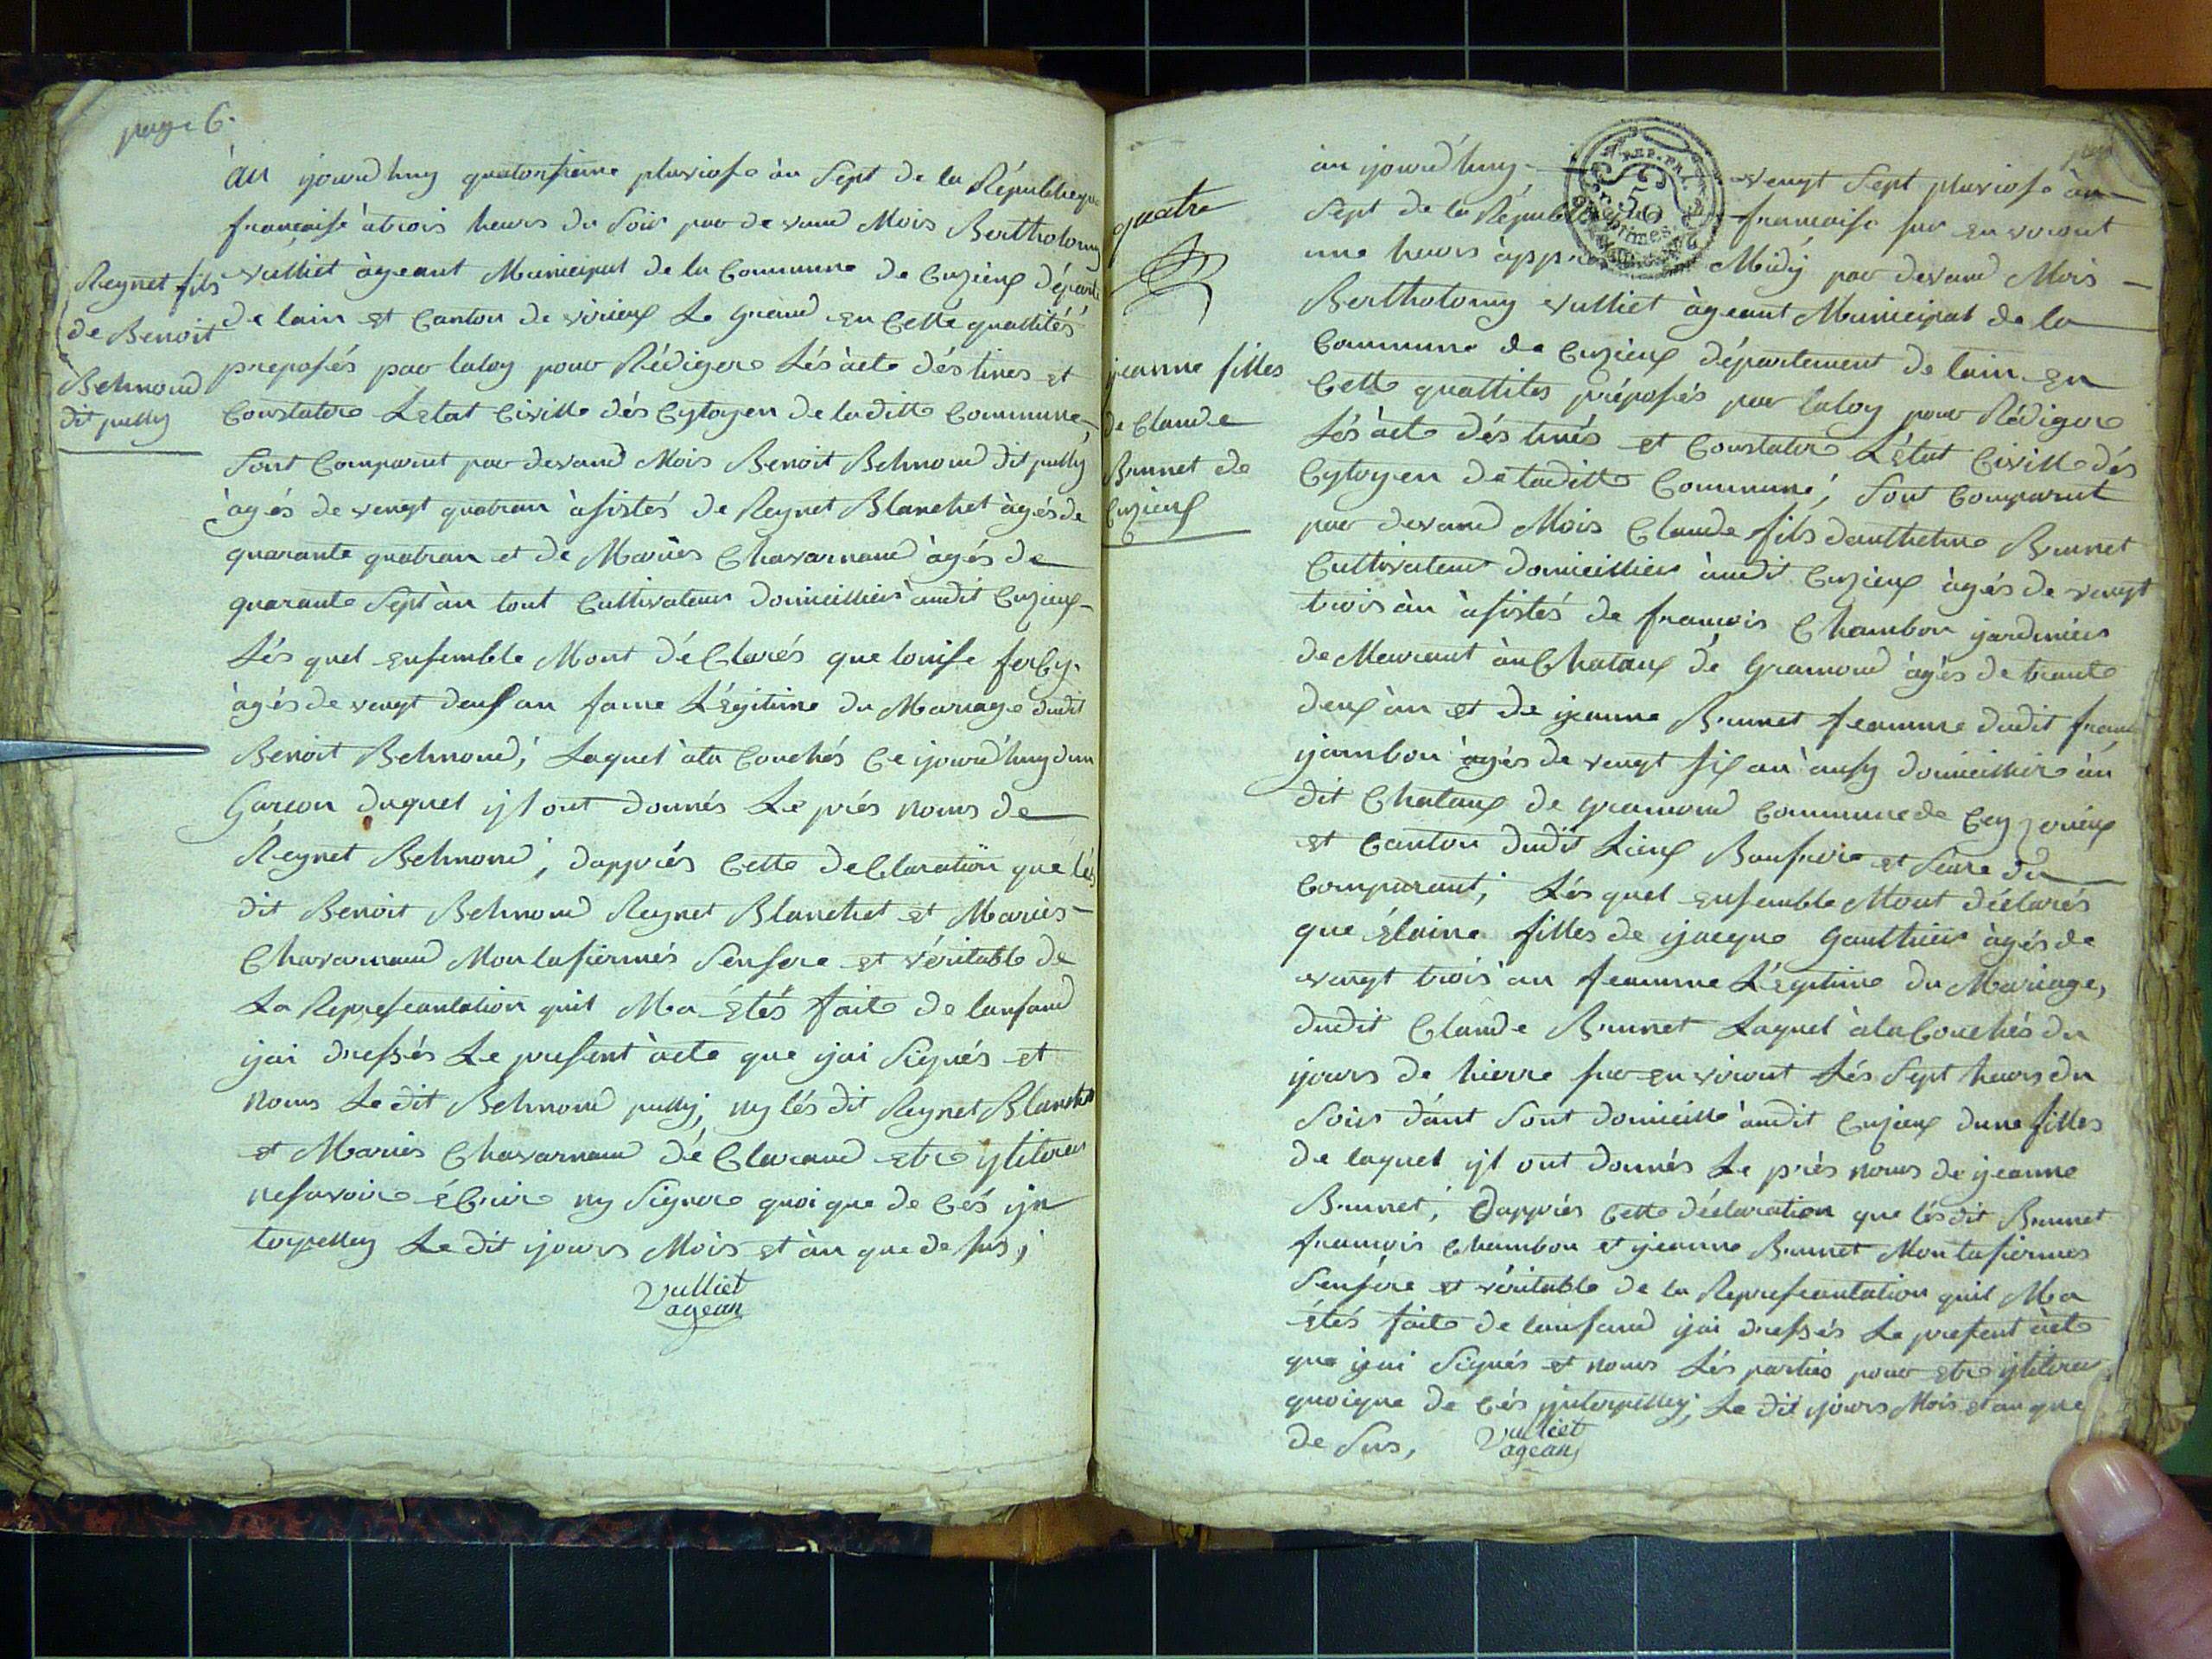 page 6.
àu ijourdhuy quatorsieme pluviose àn Sept de la Républicque
française à trois heurs du Soir par devand Mois Bertholomy
vulliet àgeant Municipal de la Commune de Cuzieux départe
de lain et Canton de virieux Le Grand en Cette quallités
preposés par laloy pour Rédigere Lés àcte déstinés et
Constatere Létat Civille dés Cytoyen de laditte Commune,
Sont Comparut par devand Mois Benoit Belmond dit pully
àgés de vengt quatran àsistés de Reynet Blanchet àgés de
quarante quatran et de Mariès Chavarnand àgés de
quarante Sept àn tout Cultivateur domicilliers àudit Cuzieux
Lés quel ensemble Mont déClarés que louise
àgés de vengt deux an fame Légitime du Mariage dudit
Benoit Belmond; Laquel àla Couchés Ce ijourd'huy dun
Garcon duquel ijl ont donnés Le prés noms de
Reynet Belmond; dapprés Cette deClaration que lés
dit Benoit Belmond Reynet Blanchet et Mariès
Chavarnand Montafirmés Sensere et véritable de
La Represeantation quil Ma étés faite de lanfand
ijai dressés Le present àcte que ijai Signés et
noms Le dit Belmond pully; ny lés dit Reynet Blanchet
et Mariès Chavarnand déClarand etre ijliterer
nesavoire éCrire ny Signere quoi que de Cés ijn
terpelley Le dit ijours Mois et àn que de Sus;
Vulliet
agean
Reynet fils
de Benoit
Belmond
dit pully
quatre
jeanne filles
de Claude
Brunet de
Cuzieux
àn ijourd'huy vengt Sept pluviose àn
Sept de la République francaise sur en viront
une heurs àpprés Midÿ par devand Mois
Bertholomy vulliet àgeant Municipal de la
Commune de Cuzieux département de lain en
Cette quallités préposés par laloy pour Rédigere
Lés àcte déstinés et Constatere Létat Civille dés
Cytoyen de laditte Commune; Sont Comparut
par devand Mois Claude fils danthelme Brunet
Cultivateur domicillier àudit Cuzieux àgés de vengt
trois àn àsistés de francois Chambon ijardinier
de Meurant àu Chataux de Gramond àgés de trante
deux àn et de ijeanne Brunet feamme dudit franc
ijambon àgés de vengt six an àussy domicillière àu
dit Chataux de gramond Commune de Ceyzerieux
et Canton dudit Lieux Baufrere et Seure du
Comparant; Lés quel ensemble Mont déclarés
que élaine filles de ijacque Gaulthier àgés de
vengt trois an feamme Légitime du Mariage,
dudit Claude Brunet Laquel àla Couchés du
ijours de hierre sur en viront Lés Sept heurs du
Soir dant Sont domicille àudit Cuzieux dune filles
de laquel ijl ont donnés Le prés noms de ijeanne
Brunet; dapprés Cette déclaration que lés dit Brunet
francois Chambon et ijeanne Brunet Montafirmes
Sensére et véritable de la Represeantation quil Ma
étés faite de lanfand ijai dressés Le present àcte
que ijai Signés et noms Lés parties pour etre ijliterer
quoique de Cés ijnterpelley; Le dit ijours Mois et an que
de Sus,
Vulliet
agean
REP. FRA.